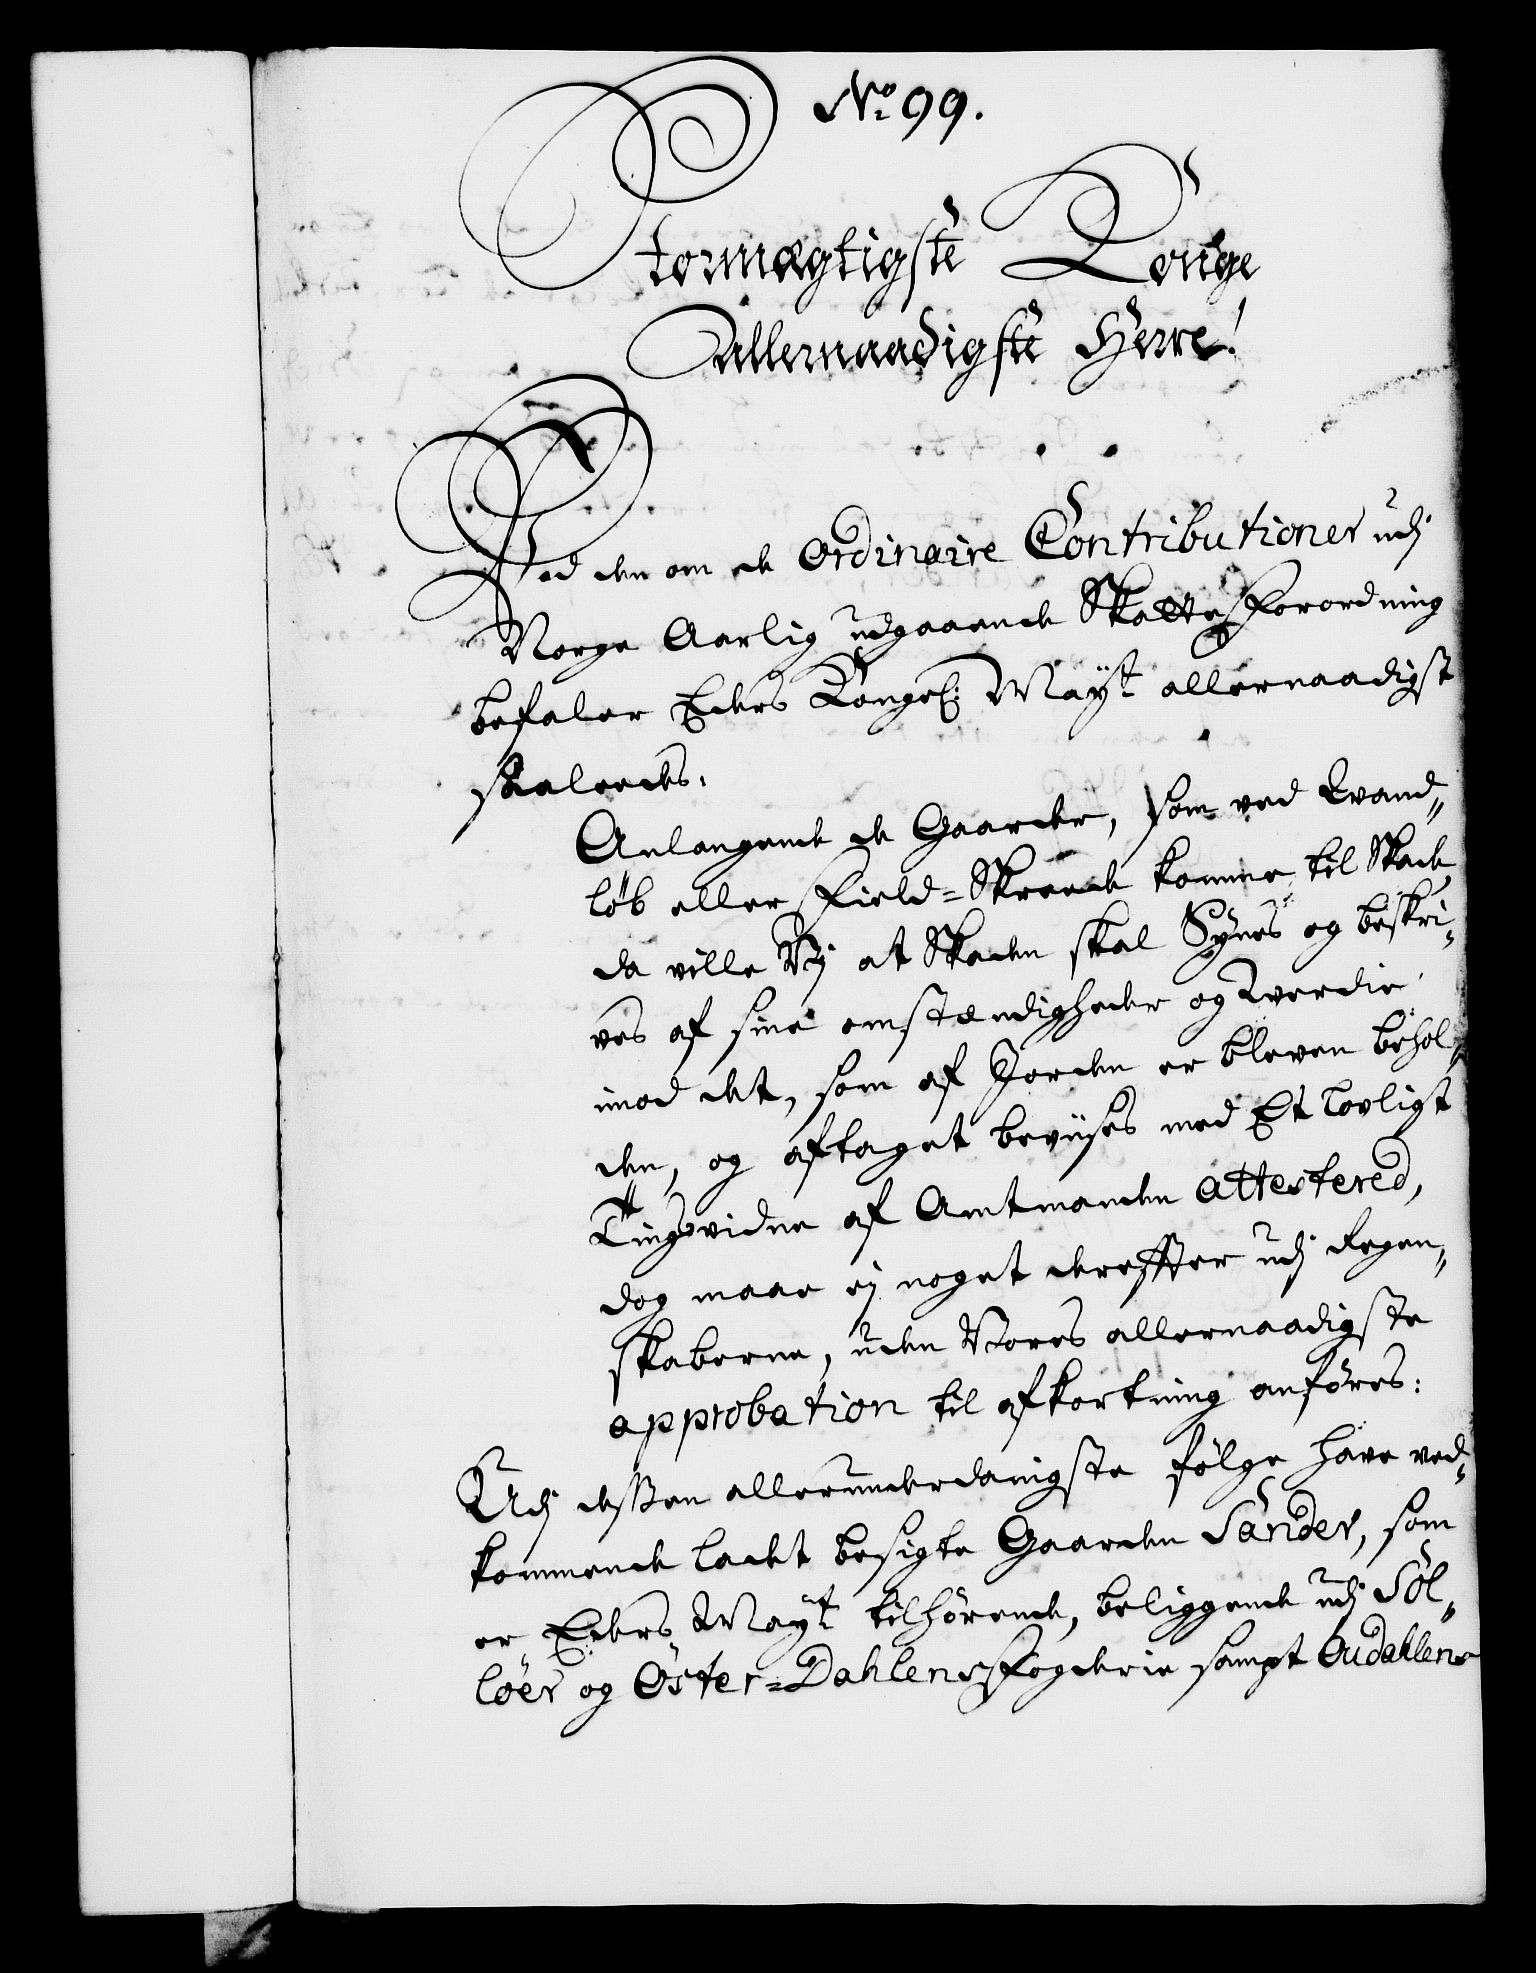 No 99.
Stormægtigste Konge
Allernaadigste Herre!
Ved den om de Ordinaire Contributioner udj
Norge Aarlig udgaaende Skatte Forordning
befaler Eders Kongel: Mayt allernaadigst
saaleedes:
Anlangende de Gaarder, som ved Vand„
løb eller Field-Skreede komme til Skade,
da ville Vij at Skaden skal Synes og beskri„
ves af sine omstændigheder og Verdie
imod det, som af Jorden er bleven behol„
den, og aftaget beviises med Et lovligt
Tingsvidne af Amtmanden attestered,
dog maae ej noget derefter udj Regen„
skaberne, uden Vores allernaadigste
approbation til afkortning anføres:
Udj dessen allerunderdanigste følge have ved„
kommende ladet besigte Gaarden Sander, som
er Eders Mayt tilhørende, beliggende udj Søl„
løer og Öster-Dahlens Fogderie sampt Oudahlens